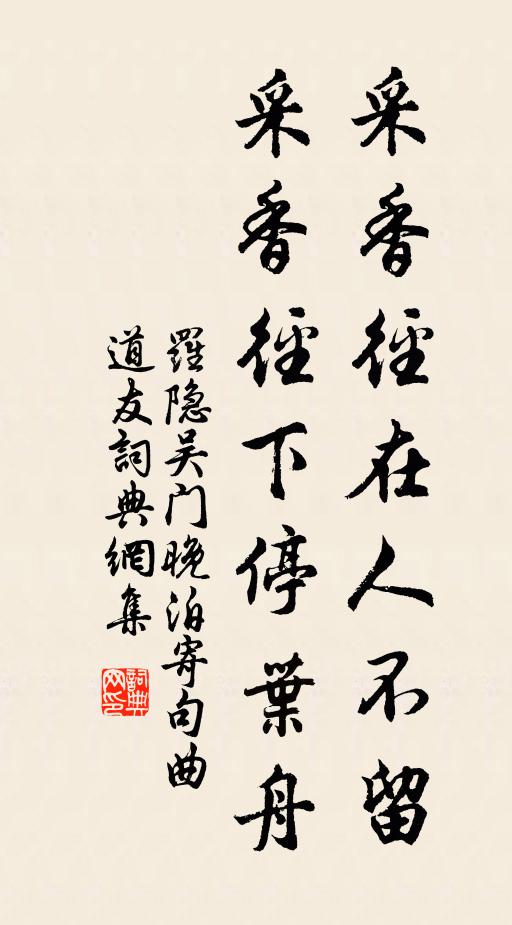 采香徑在人不留
采香徑下停葉舟
羅隐吴门晚泊寄句曲
道友詞典網集
詞典
网印